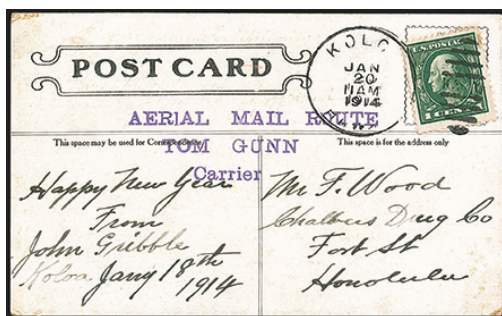 POST CARD
KOLO
JAN
20
11AM
1914
U.S. POSTAGE
1 CENT
AERIAL MAIL ROUTE
TOM GUNN
Carrier
This space may be used for Correspondence
This space is for the address only
Happy New Year
From
John Gribble
Koloa Jany 18th
1914
Mr F. Wood
Drug Co
Fort St
Honolulu